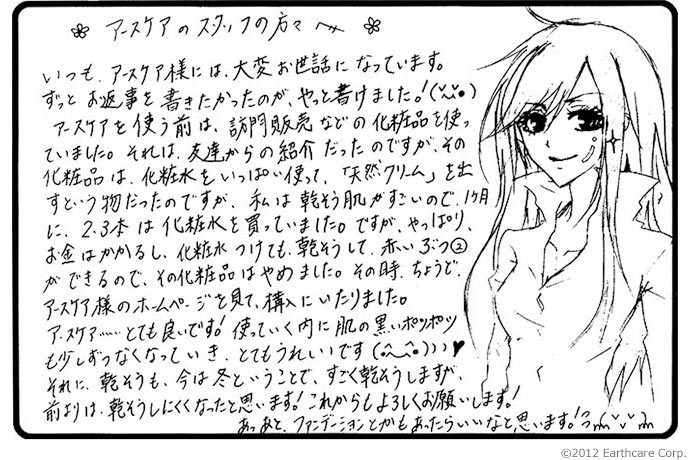 アースケアのスタッフの方々へ
いつも、アースケア様には、大変お世話になっています。
ずっとお返事を書きたかったのが、やっと書けました。!
アースケアを使う前は、訪問販売などの化粧品を使っ
ていました。それは、友達からの紹介だったのですが、その
化粧品は、化粧水をいっぱい使って、「天然クリーム」を出
すという物だったのですが、私は乾そう肌がすごいので、1ヶ月
に、2・3本は化粧水を買っていました。ですが、やっぱり、
お金はかかるし、化粧水つけても、乾そうして、赤いぶつ②
ができるので、その化粧品はやめました。その時、ちょうど、
アースケア様のホームページを見て、購入にいたりました。
アースケア……とても良いです!使っていく内に肌の黒いポツポツ
も少しずつなくなっていき、とてもうれしいです(•^ ^•)))♥
それに、乾そうも、今は冬ということで、すごく乾そうしますが、
前よりは、乾そうしにくくなったと思います!これからもよろしくお願いします!
あっあと、ファンデーションとかもあったらいいなと、思います!!
©2012 Earthcare Corp.